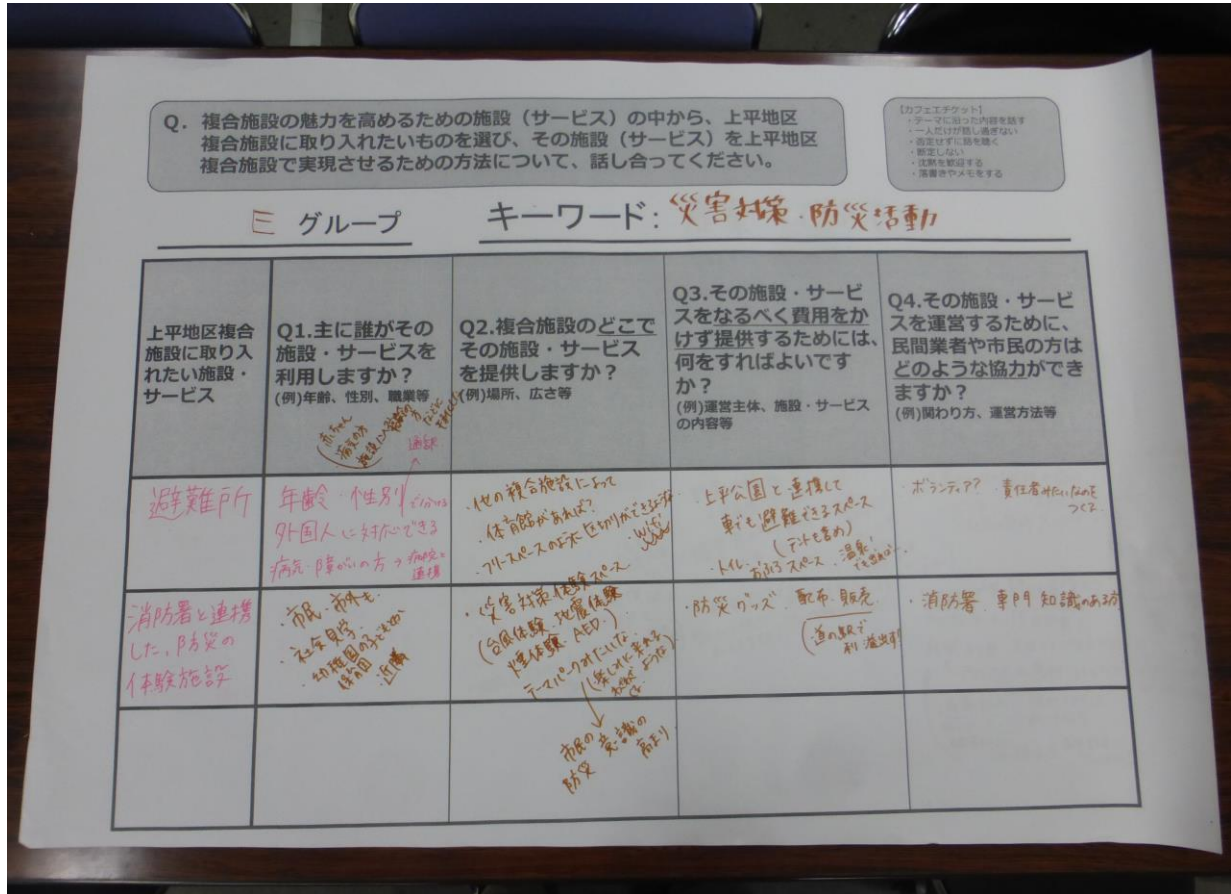 Q. 複合施設の魅力を高めるための施設（サービス）の中から、上平地区
複合施設に取り入れたいものを選び、その施設（サービス）を上平地区
複合施設で実現させるための方法について、話し合ってください。
【カフェエチケット】
・テーマに沿った内容を話す
・一人だけが話し過ぎない
・否定せずに話を聴く
・断定しない
・沈黙を歓迎する
・落書きやメモをする
E グループ
キーワード: 災害対策・防災活動
上平地区複合
施設に取り入
れたい施設・
サービス
Q1.主に誰がその
施設・サービスを
利用しますか？
(例)年齢、性別、職業等
赤ちゃん
病気の方
通訳
Q2.複合施設のどこで
その施設・サービス
を提供しますか？
(例)場所、広さ等
Q3.その施設・サービ
スをなるべく費用をか
けず提供するためには、
何をすればよいです
か？
(例)運営主体、施設・サービス
の内容等
Q4.その施設・サービ
スを運営するために、
民間業者や市民の方は
どのような協力ができ
ますか？
(例)関わり方、運営方法等
避難所
年齢・性別
外国人に対応できる
病気・障がいの方→病院と
連携
・他の複合施設によって
体育館があれば？
・フリースペースのような区切りができる
Wifi
・上平公園と連携して
車でも避難できるスペース
(テントも含め)
・トイレ・おふろスペース・温泉
・ボランティア？ 責任者みたいなのを
つくる
消防署と連携
した、防災の
体験施設
・市民・市外も
・社会見学
・幼稚園の子どもとか
保育園
近隣
・災害対策体験スペース
(台風体験・地震体験
煙体験・AED・)
テーマパークみたいな
(楽しみに来れる
ような)
市民の
防災意識の
高まり
・防災グッズ 配布・販売
(道の駅で
・消防署、専門知識のある方